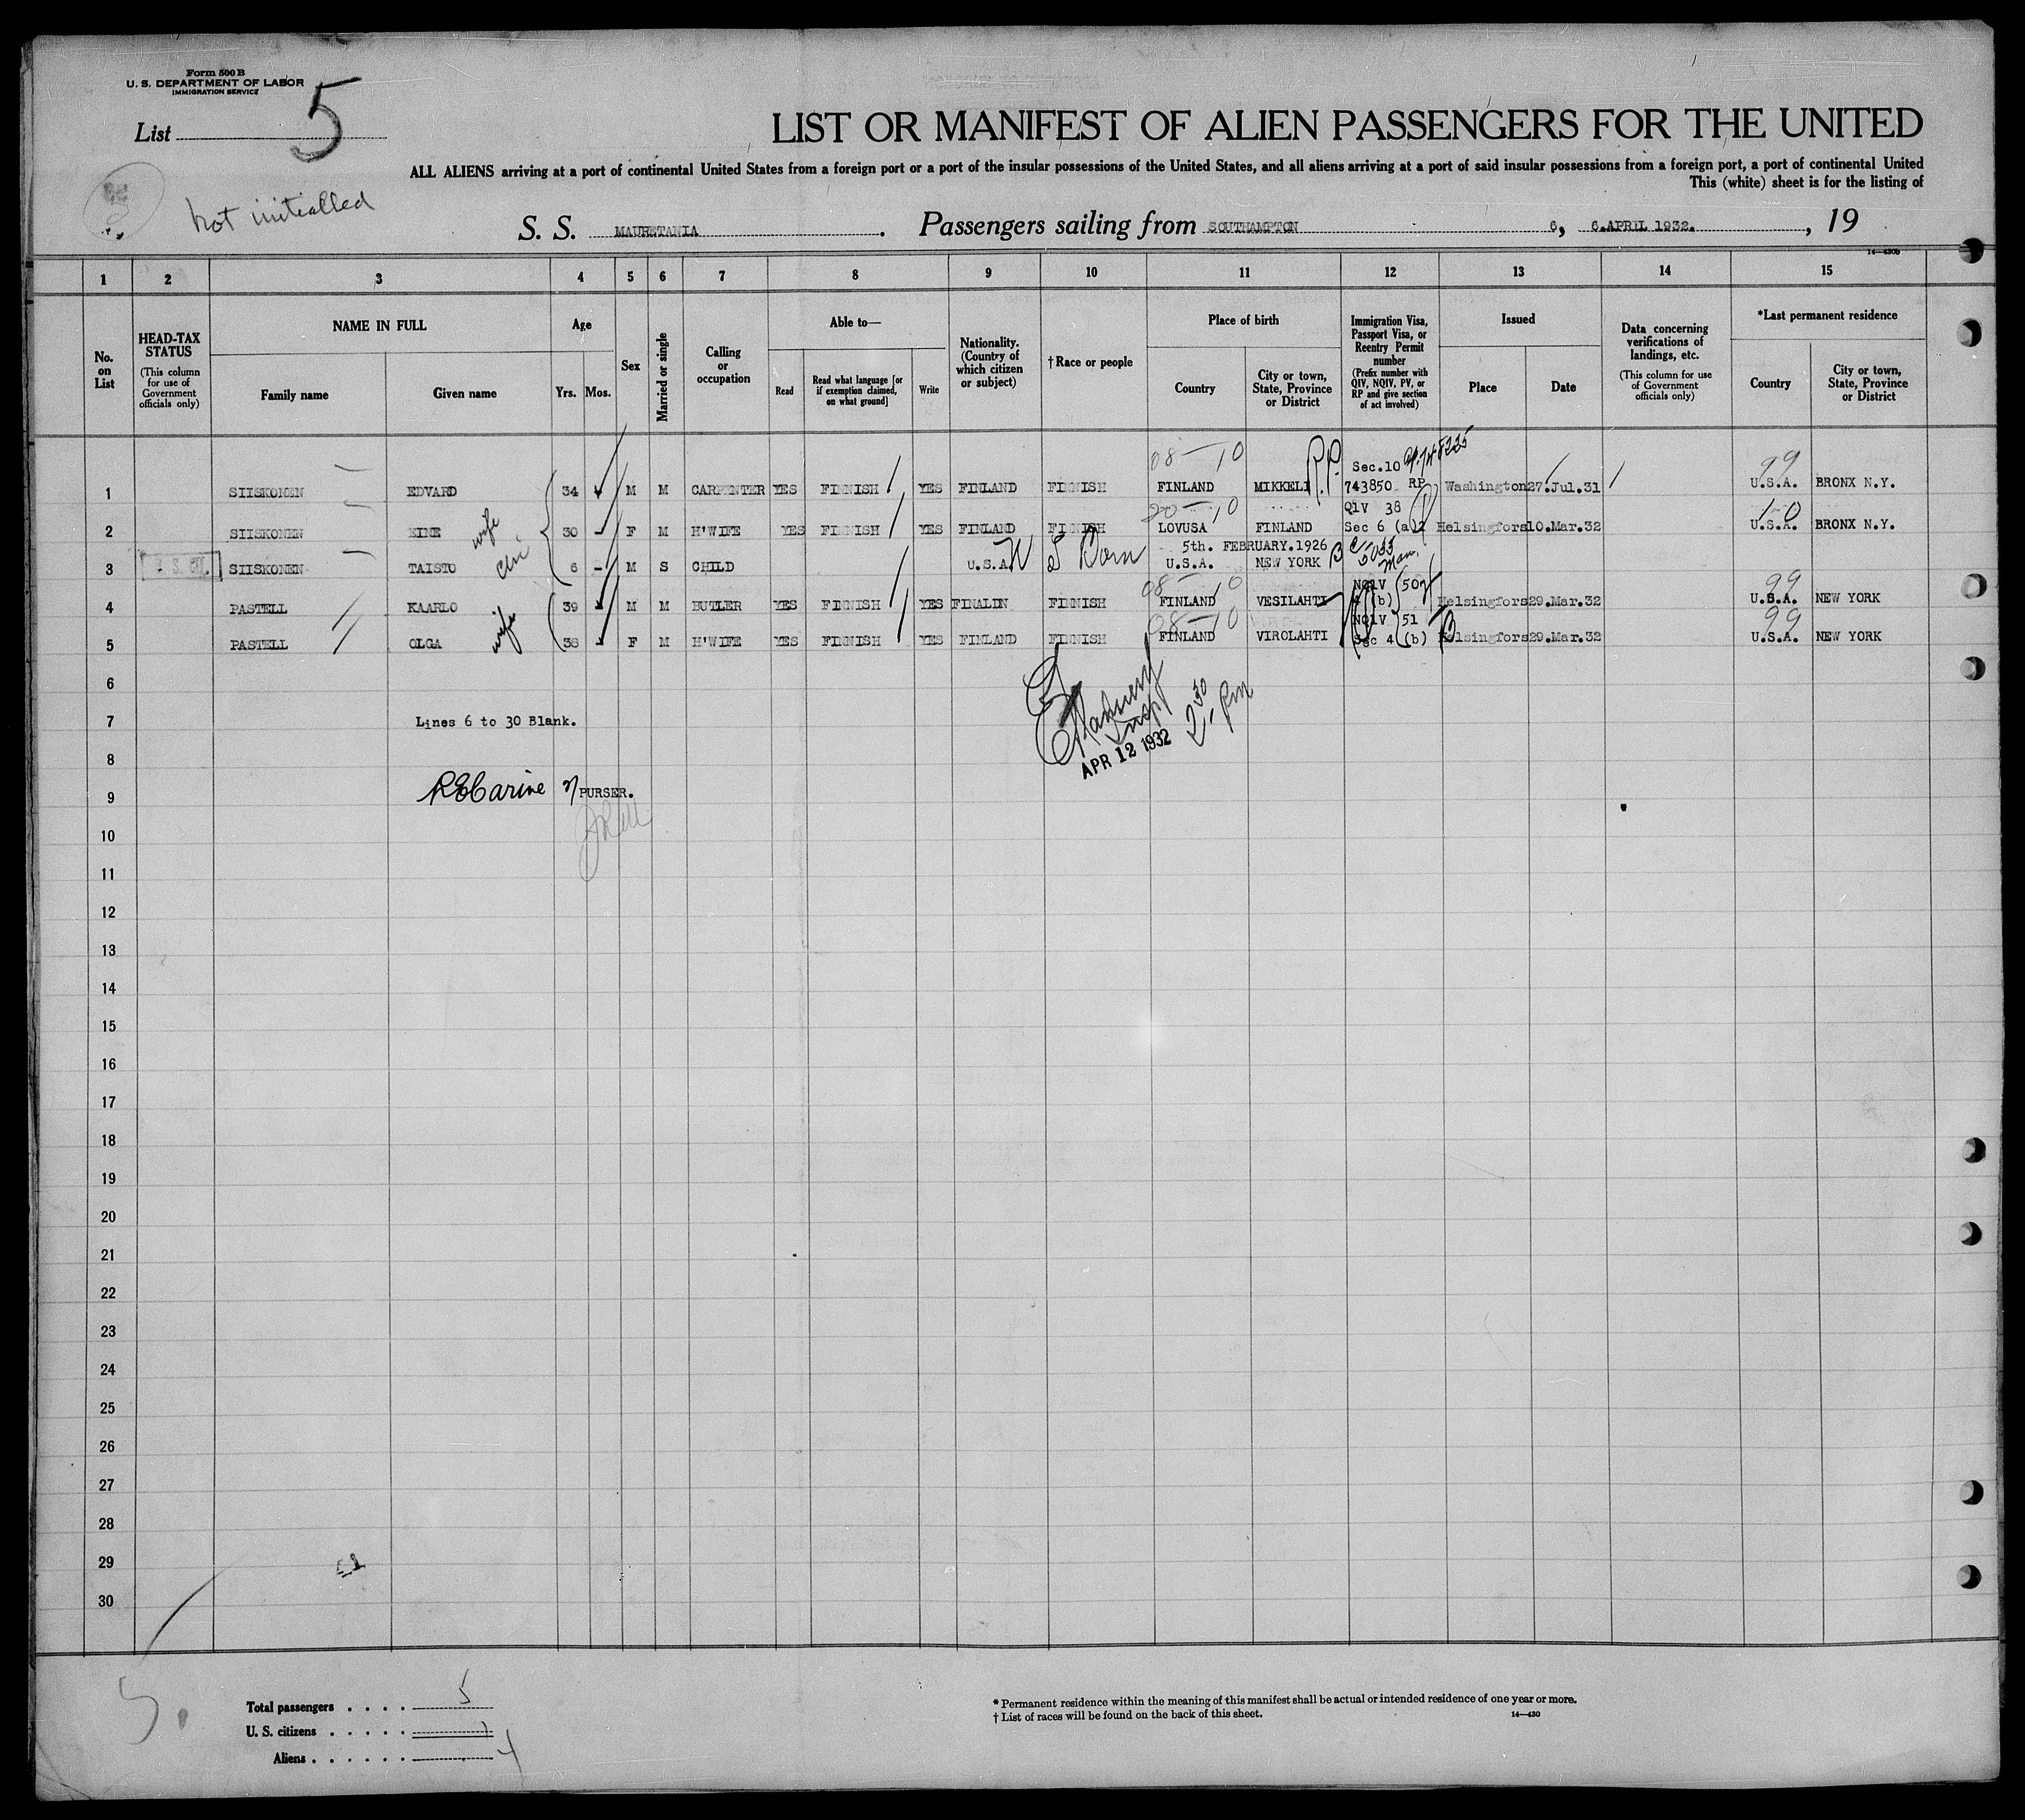 Form 500 B
U. S. DEPARTMENT OF LABOR
IMMIGRATION SERVICE
List 5
LIST OR MANIFEST OF ALIEN PASSENGERS FOR THE UNITED
ALL ALIENS arriving at a port of continental United States from a foreign port or a port of the insular possessions of the United States, and all aliens arriving at a port of said insular possessions from a foreign port, a port of continental United
This (white) sheet is for the listing of
Not initialled
S. S. MAURETANIA. Passengers sailing from SOUTHAMPTON 6, 6.APRIL 1932., 19
14—430b
1 2 3 4 5 6 7 8 9 10 11 12 13 14 15
No. on List
HEAD-TAX STATUS
(This column for use of Government officials only)
NAME IN FULL
Family name
Given name
Age
Yrs. Mos.
Sex
Married or single
Calling or occupation
Able to—
Read
Read what language [or if exemption claimed, on what ground]
Write
Nationality. (Country of which citizen or subject)
†Race or people
Place of birth
Country
City or town, State, Province or District
Immigration Visa, Passport Visa, or Reentry Permit number
(Prefix number with QIV, NQIV, PV, or RP and give section of act involved)
Issued
Place
Date
Data concerning verifications of landings, etc.
(This column for use of Government officials only)
*Last permanent residence
Country
City or town, State, Province or District
08—10 R.P. Sec.10 99
1 SIISKONEN EDVARD 34 M M CARPENTER YES FINNISH YES FINLAND FINNISH FINLAND MIKKELI 743850 RP Washington 27.Jul.31 U.S.A. BRONX N.Y.
wife 80—10 QIV 38 10
2 SIISKONEN EINE 30 F M H'WIFE YES FINNISH YES FINLAND FINNISH LOVUSA FINLAND Sec 6 (a)2 Helsingfors 10.Mar.32 U.S.A. BRONX N.Y.
chi 5th. FEBRUARY.1926
3 SIISKONEN TAISTO 6 - M S CHILD U.S.A. Born U.S.A. NEW YORK
08—10 NQIV 50 99
4 PASTELL KAARLO 39 M M BUTLER YES FINNISH YES FINALDN FINNISH FINLAND VESILAHTI (b) Helsingfors 29.Mar.32 U.S.A. NEW YORK
wife 08—10 NQIV 51 99
5 PASTELL OLGA 38 F M H'WIFE YES FINNISH YES FINLAND FINNISH FINLAND VIROLAHTI Sec 4 (b) Helsingfors 29.Mar.32 U.S.A. NEW YORK
6
7 Lines 6 to 30 Blank.
Insp 2 30 pm
APR 12 1932
8
9 PURSER.
10
11
12
13
14
15
16
17
18
19
20
21
22
23
24
25
26
27
28
29
30
5.
Total passengers . . . . 5
U. S. citizens . . . . . 1
Aliens . . . . . . 4
* Permanent residence within the meaning of this manifest shall be actual or intended residence of one year or more.
† List of races will be found on the back of this sheet.
14—430